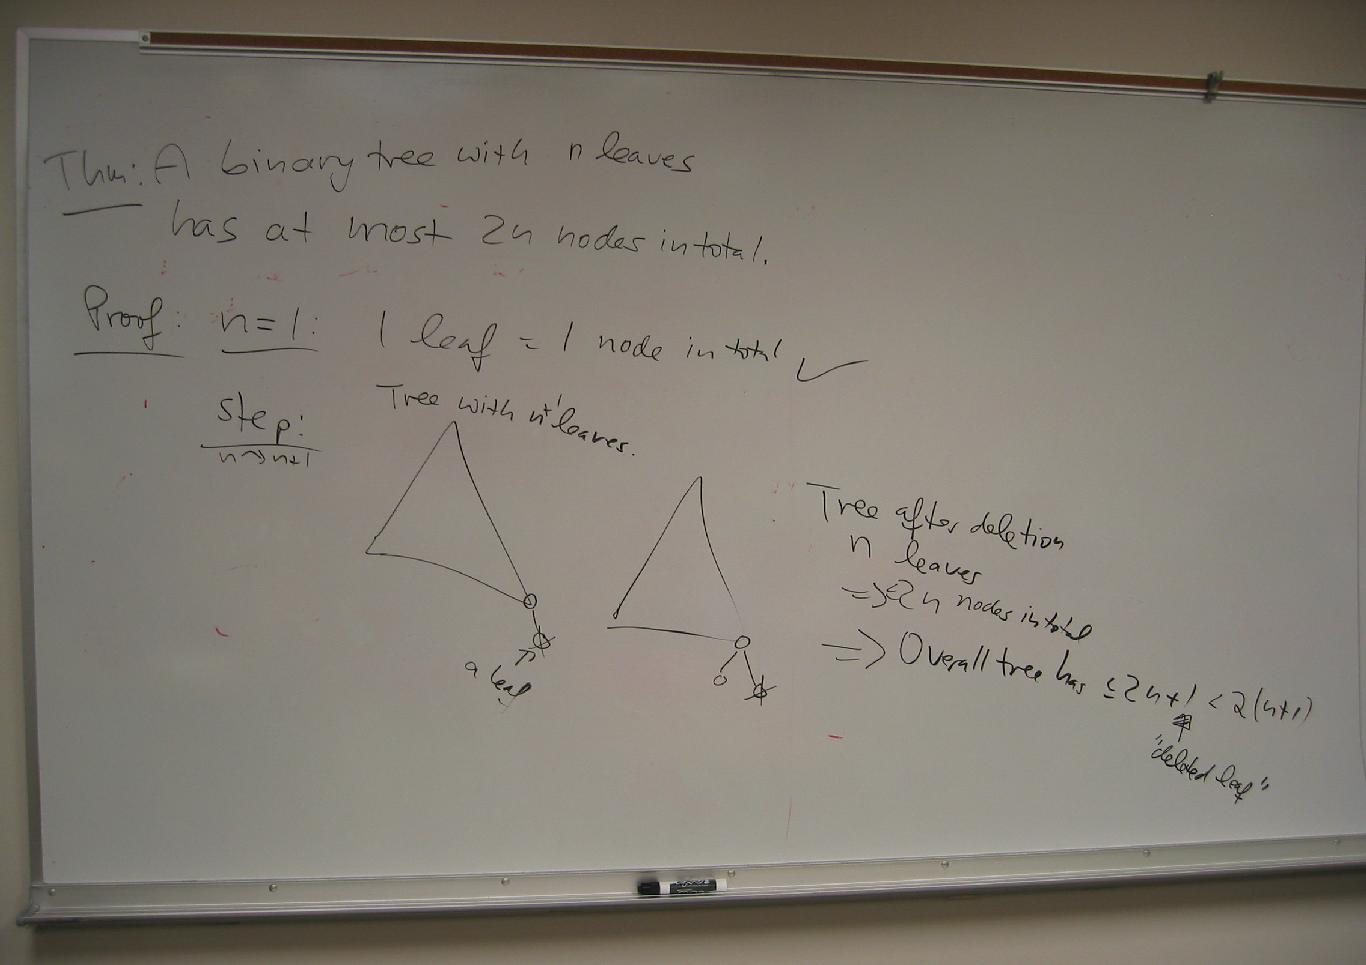 Thm: A binary tree with n leaves
has at most 2n nodes in total.
Proof: n=1: 1 leaf = 1 node in total ✓
Step: Tree with n+1 leaves.
n→n+1
a leaf
Tree after deletion
n leaves
=> ≤2n nodes in total
=> Overall tree has ≤2n+1 < 2(n+1)
"deleted leaf"